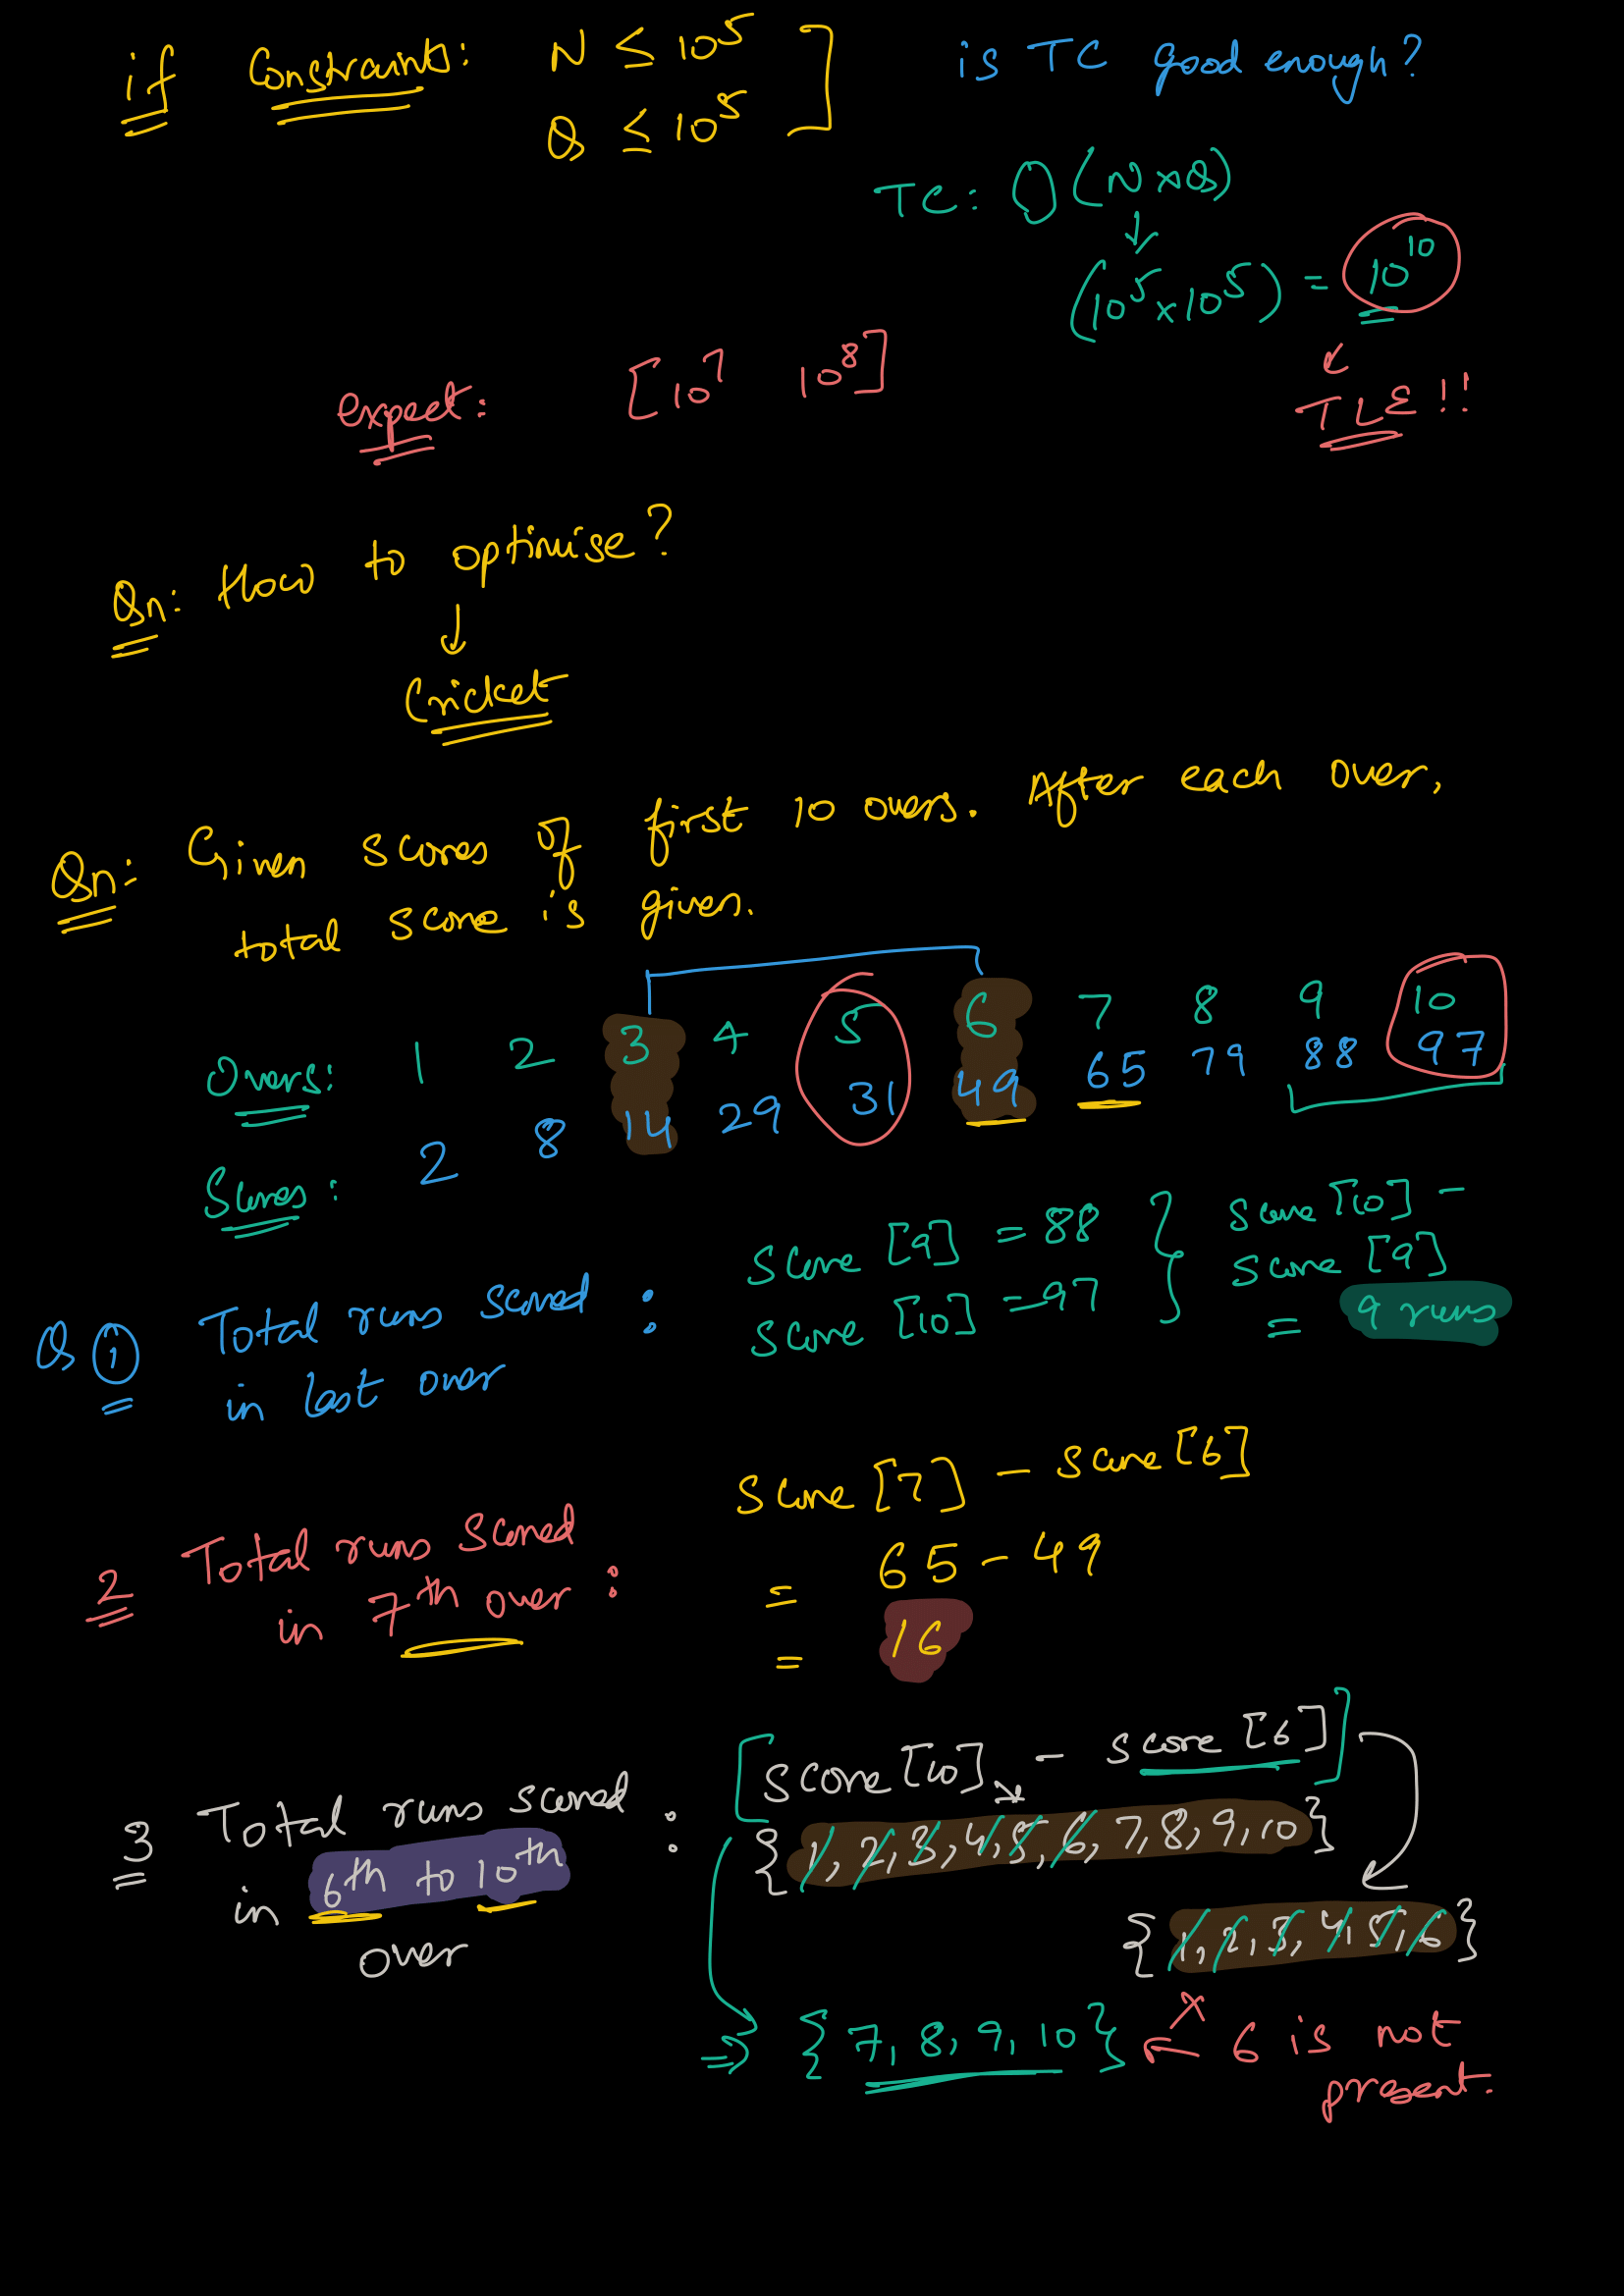 if Constraints: N ≤ 10^5
Q ≤ 10^5
is TC good enough?
TC: O(N×Q)
(10^5×10^5) = 10^10
TLE!!
expect: [10^7 10^8]
Qn: How to optimise?
Cricket
Qn: Given scores of first 10 overs. After each over,
total score is given.
Overs: 1 2 3 4 5 6 7 8 9 10
Scores: 2 8 14 29 31 49 65 79 88 97
Q 1 Total runs scored :
in last over
score [9] = 88
score [10] = 97
} score [10] -
score [9]
= 9 runs
2 Total runs scored
in 7th over :
score [7] - score [6]
= 65 - 49
= 16
3 Total runs scored :
in 6th to 10th
over
[score [10] - score [6]]
{1, 2, 3, 4, 5, 6, 7, 8, 9, 10}
{1, 2, 3, 4, 5, 6}
⇒ {7, 8, 9, 10} ← x 6 is not
present.